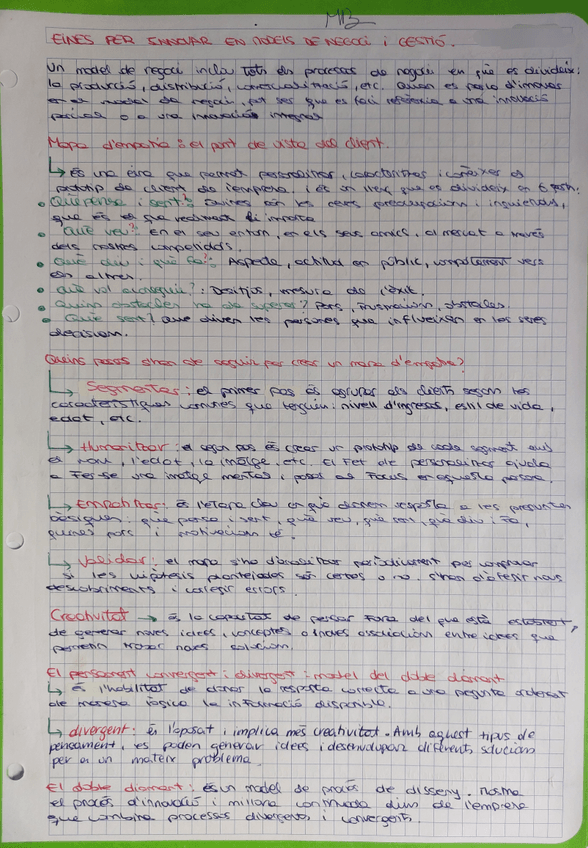 EINES PER INNOVAR EN MODELS DE NEGOCI I GESTIÓ.
Un model de negoci inclou tots els processos de negoci en què es divideix:
la producció, distribució, comercialització, etc. Quan es parla d'innovar
en el model de negoci, pot ser que es faci referència a una innovació
parcial o a una innovació integral
Mapa d'empatia: el punt de vista del client.
↳ És una eina que permet personalitzar, caracteritzar i conèixer el
prototip de client de l'empresa. i és un llenç que es divideix en 6 parts:
• Què pensa i sent?: Quines són les seves preocupacions i inquietuds,
què és el que realment li importa
• Què veu?: En el seu entorn, en els seus amics, al mercat a través
dels nostres competidors.
• Què diu i què fa?: Aspecte, actitud en públic, comportament vers
els altres.
• Què vol aconseguir?: Desitjos, mesura de l'èxit.
• Quins obstacles ha de superar? Pors, frustracions, obstacles.
• Què sent? Què diuen les persones que influeixen en les seves
decisions.
Quins passos s'han de seguir per crear un mapa d'empatia?
↳ Segmentar: el primer pas és agrupar els clients segons les
característiques comunes que tinguin: nivell d'ingressos, estil de vida,
edat, etc.
↳ Humanitzar: el segon pas és crear un prototip de cada segment amb
el nom, l'edat, la imatge, etc. El fet de personalitzar ajuda
a fer-se una imatge mental i posar el focus en aquella persona.
↳ Empatitzar: és l'etapa clau en què donem resposta a les preguntes
bàsiques: què pensa i sent, què veu, què sent, què diu i fa,
quines pors i motivacions té.
↳ Validar: el mapa s'ha d'actualitzar periòdicament per comprovar
si les hipòtesis plantejades són certes o no. s'han d'afegir nous
descobriments i corregir errors.
Creativitat → És la capacitat de pensar fora del que està establert,
de generar noves idees, conceptes o noves associacions entre idees que
permetin trobar noves solucions.
El pensament convergent i divergent: model del doble diamant
↳ És l'habilitat de donar la resposta correcta a una pregunta ordenant
de manera lògica la informació disponible.
↳ divergent: és l'oposat i implica més creativitat. Amb aquest tipus de
pensament, es poden generar idees i desenvolupar diferents solucions
per a un mateix problema.
El doble diamant: és un model de procés de disseny.
el procés d'innovació i millora continuada dins de l'empresa
que combina processos divergents i convergents.